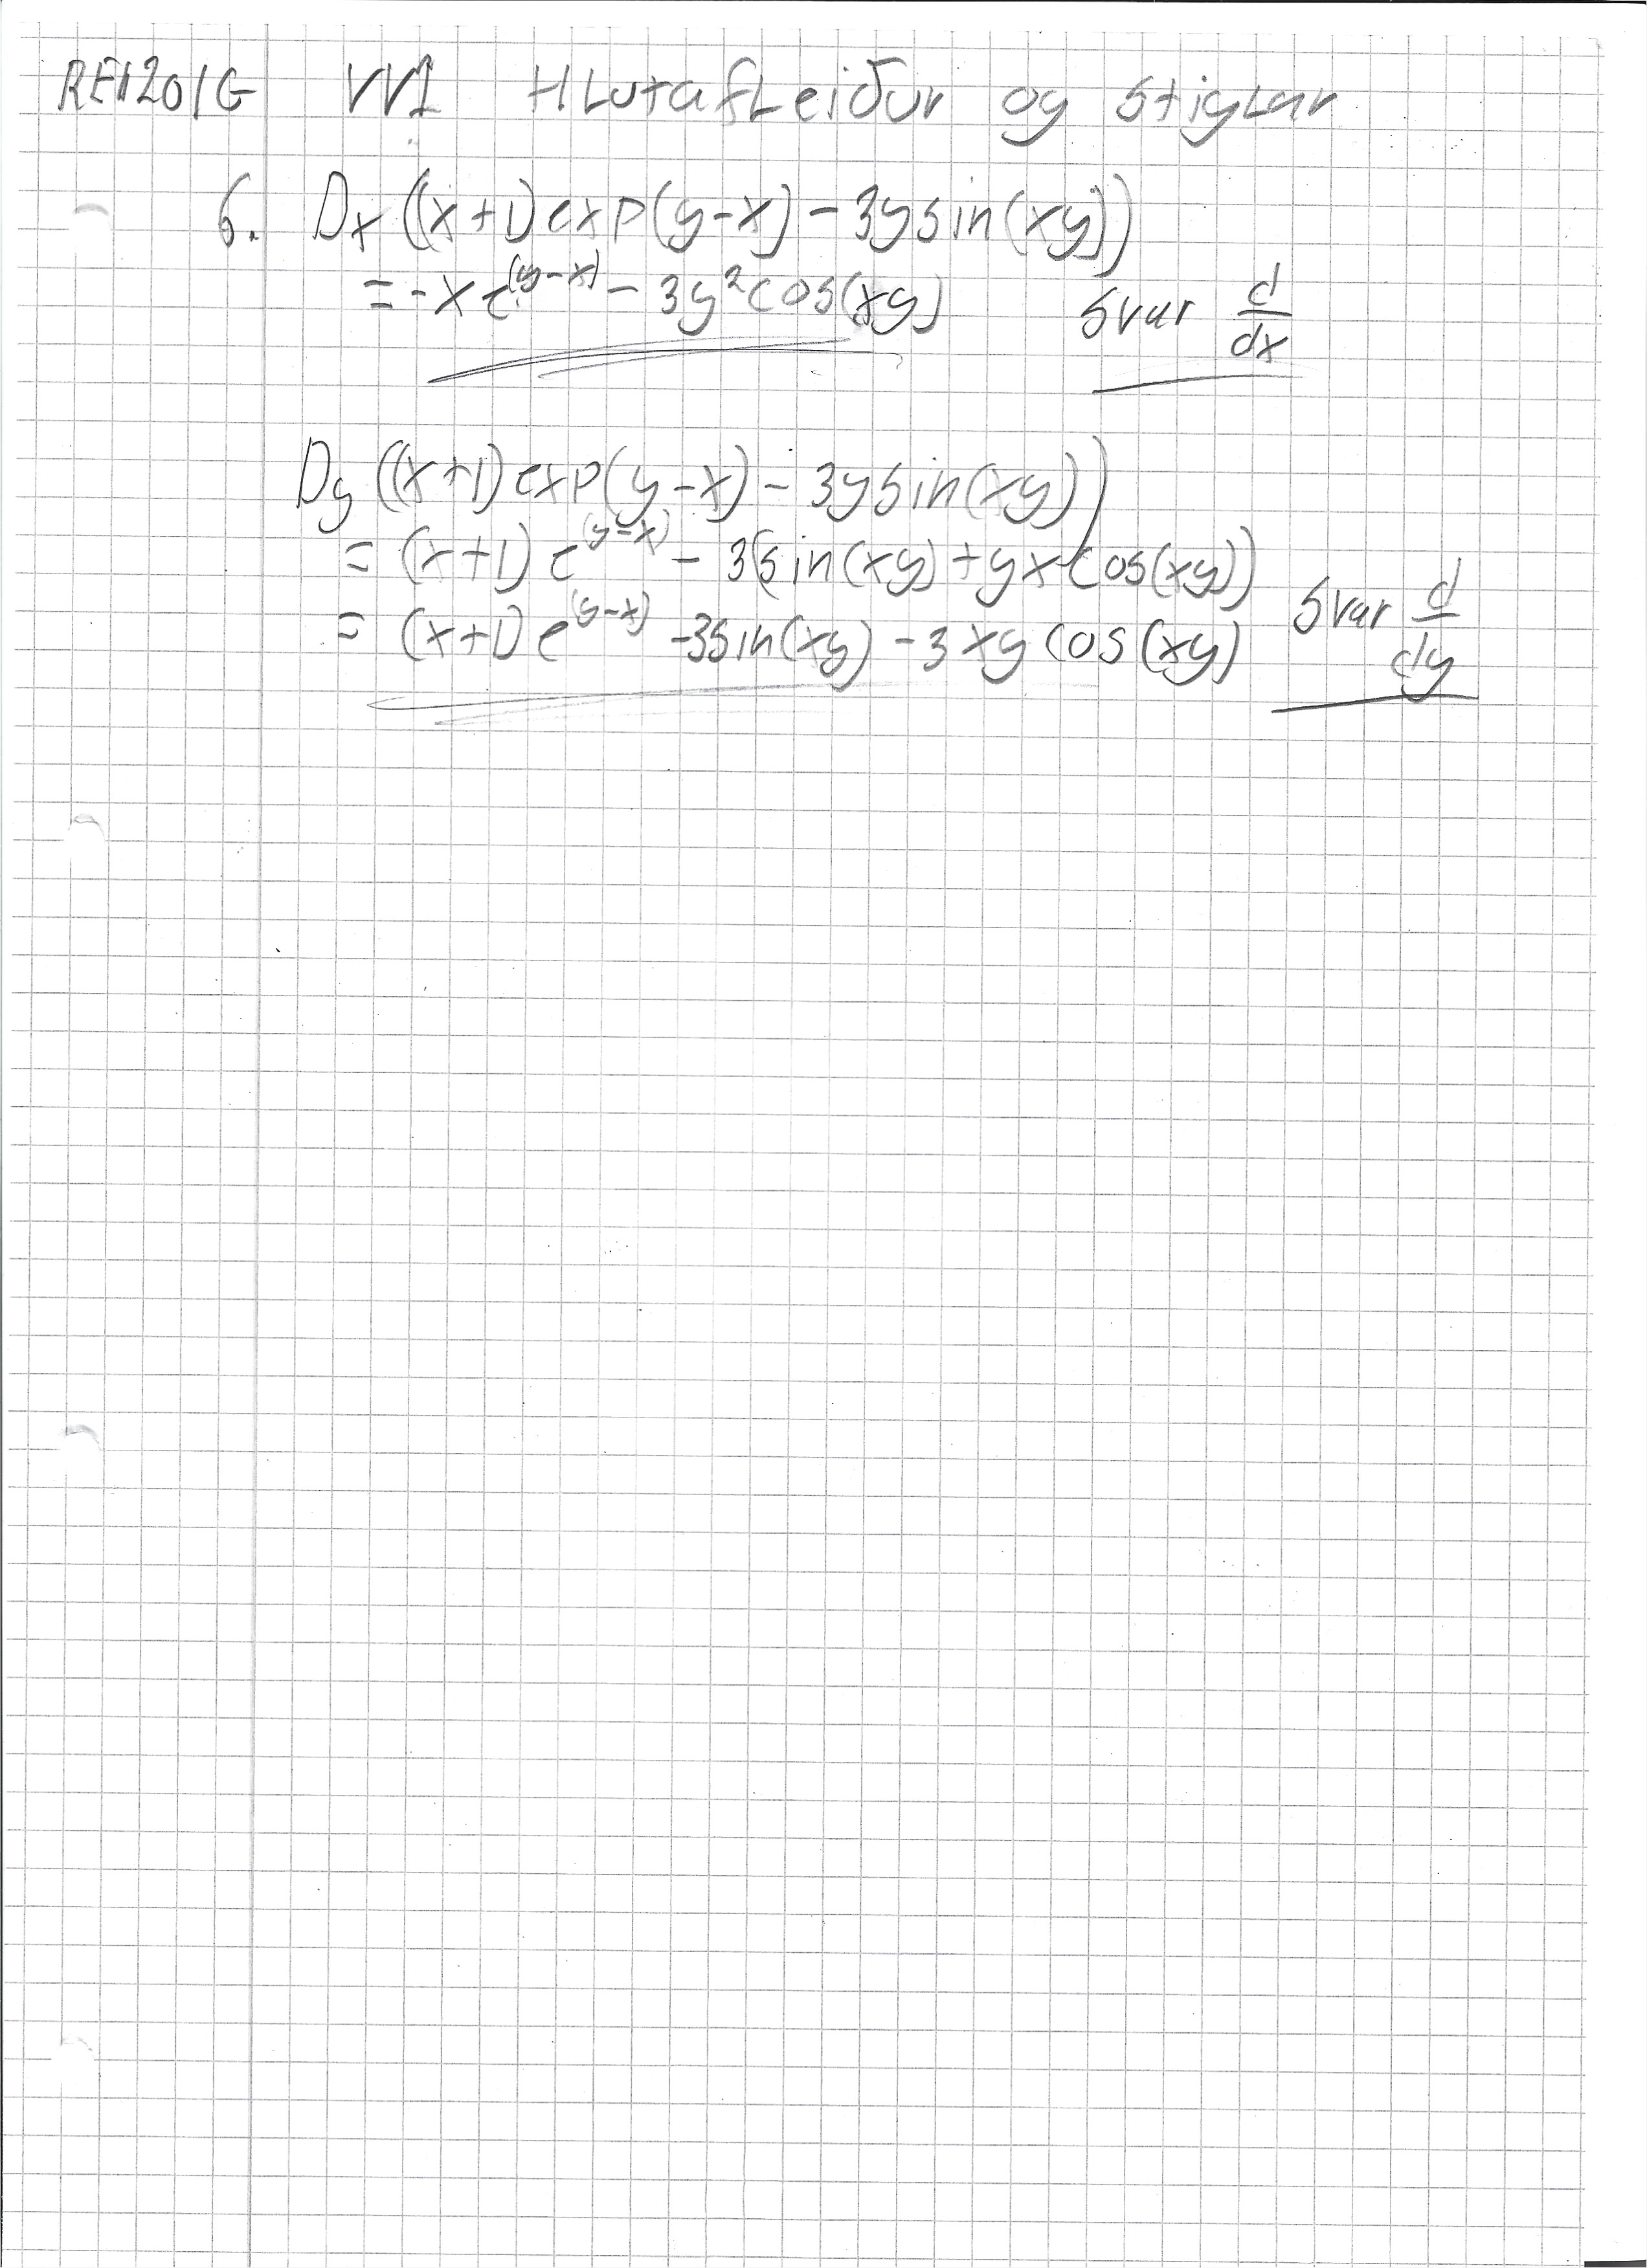 REI201G VV1 Hlutafleiður og stiglar
6. Dx ((x+1) exp(y-x) - 3y sin(xy))
= -x e^(y-x) - 3y² cos(xy) Svar d/dx
Dy ((x+1) exp(y-x) - 3y sin(xy))
= (x+1) e^(y-x) - 3(sin(xy) + yx cos(xy))
= (x+1) e^(y-x) - 3sin(xy) - 3xy cos(xy) Svar d/dy